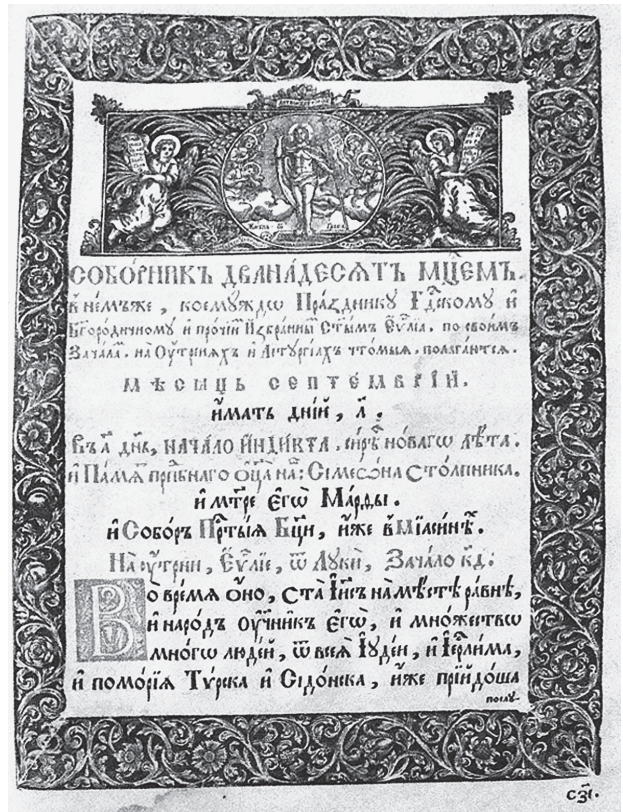 СОБО́РНИКЪ ДВАНА́ДЕСѦТЪ МЦ҃ЕМЪ.
В̾ не́мъже, коемꙋ́ждѡ Пра́здникꙋ Гдⷭ҇комꙋ и҆
Бг҃оро́дичномꙋ и҆ про́чіи И҆збра́нныⷨ Ст҃ы́мъ Є҆ѵⷢ҇лїа. по свои́мъ
Зача́лаⷨ. на Оу҆́трнѧхъ и҆ Літꙋргі́ахъ что́мыѧ. полага́ютсѧ.
МѢ́СѦЦЪ СЕПТЕ́МВРІЙ.
и҆́мать дні́й, л҃.
Въ а҃ дн҃ь, нача́ло и҆нди́кта, си́рѣⷱ҇ но́вагѡ лѣ́та.
и҆ Па́мѧⷮ прпⷣбнагѡ ѻ҆ц҃а̀ на́ⷲ: Сѷмеѡ́на Сто́лпника.
и҆ мт҃ре є҆гѡ̀ Ма́рѳы.
и҆ Собо́ръ Прⷭ҇ты́ѧ Бц҃ы, и҆́же в̾ Мїасі́нѣ.
На оу҆́трни, Є҆ѵⷢ҇лїе, ѿ Лꙋкѝ, Зача́ло к҃д:
Во вре́мѧ ѻ҆́но, ста̀ І҆и҃съ на мѣ́стѣ ра́внѣ,
и҆ наро́дъ оу҆ч҃ни́къ є҆гѡ̀, и҆ мно́жествѡ
мно́гѡ люде́й, ѿ всеѧ̀ І҆ꙋде́и, и҆ І҆ерⷭ҇ли́ма,
и҆ помо́рїѧ Тѵ́рска и҆ Сідо́нска, и҆̀же прїидо́ша
послꙋ-
сз҃і.